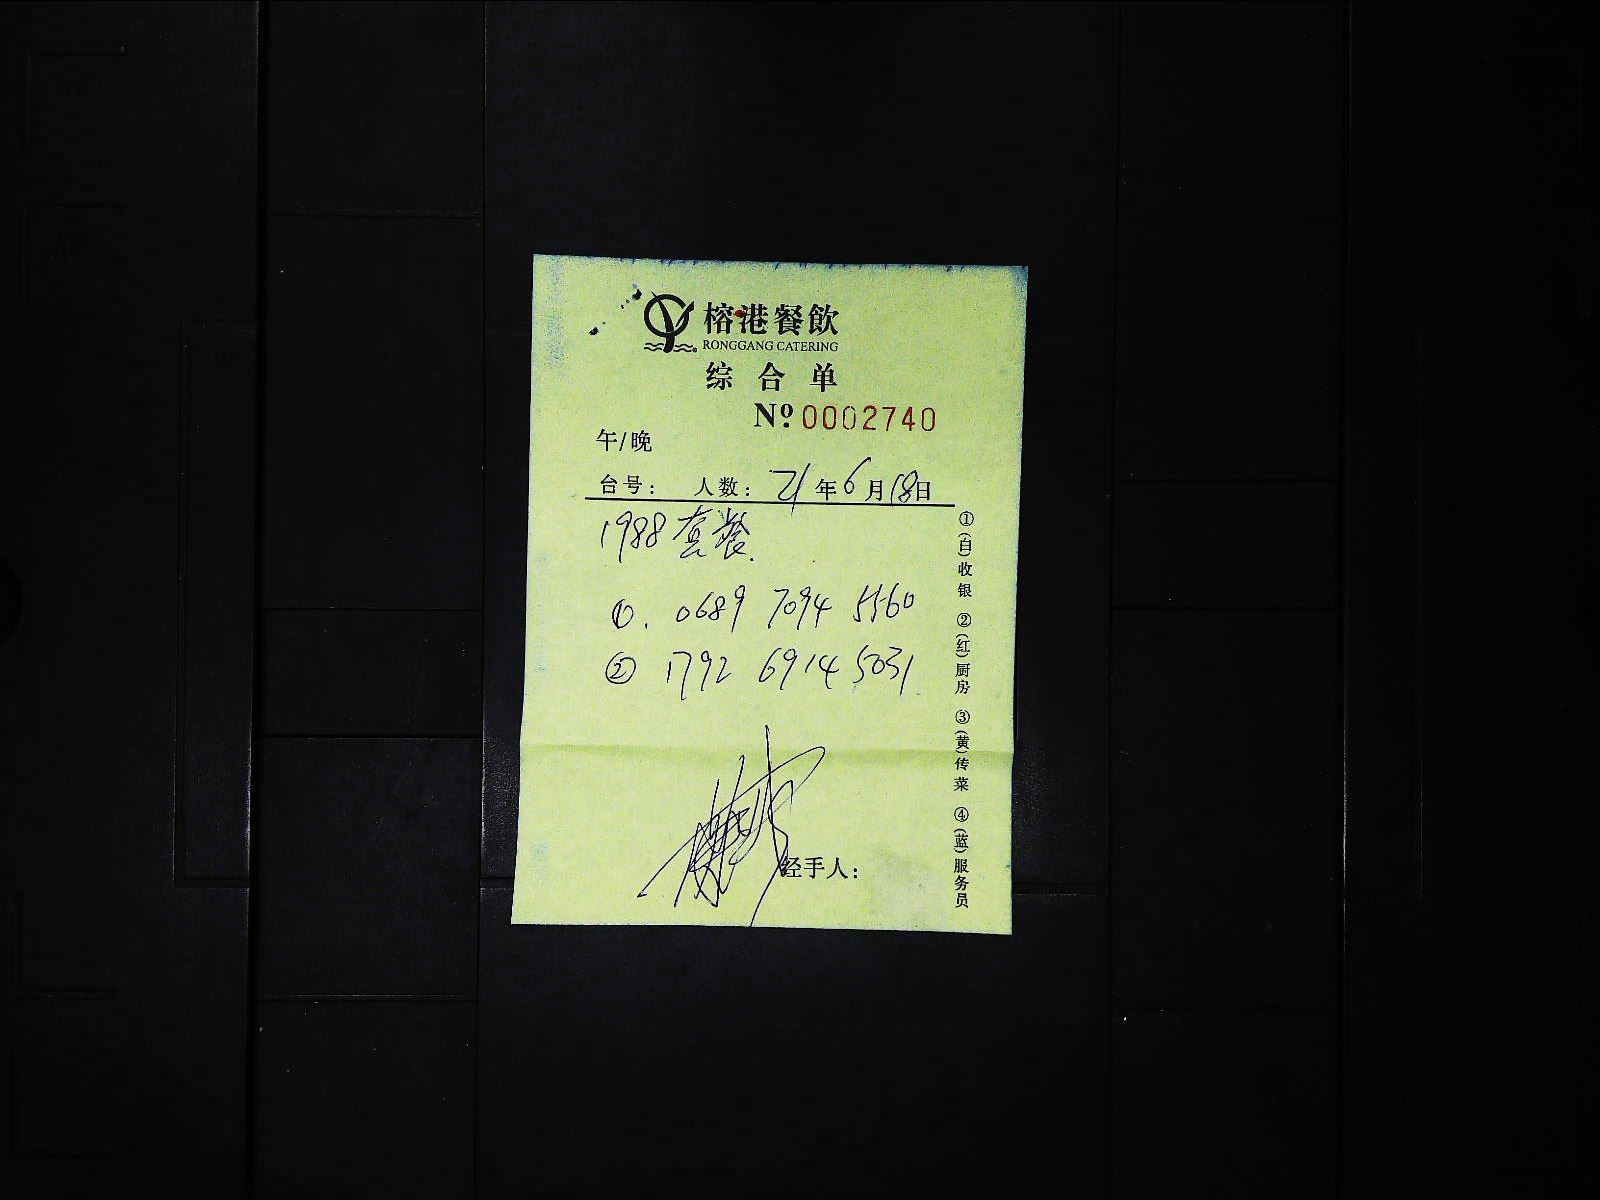 榕港餐飲
RONGGANG CATERING
综合单
Nº 0002740
午/晚
台号： 人数： 21年6月18日
1988套餐.
①. 0689 7094 5560
② 1792 6914 5031
经手人：
①(白)收银 ②(红)厨房 ③(黄)传菜 ④(蓝)服务员